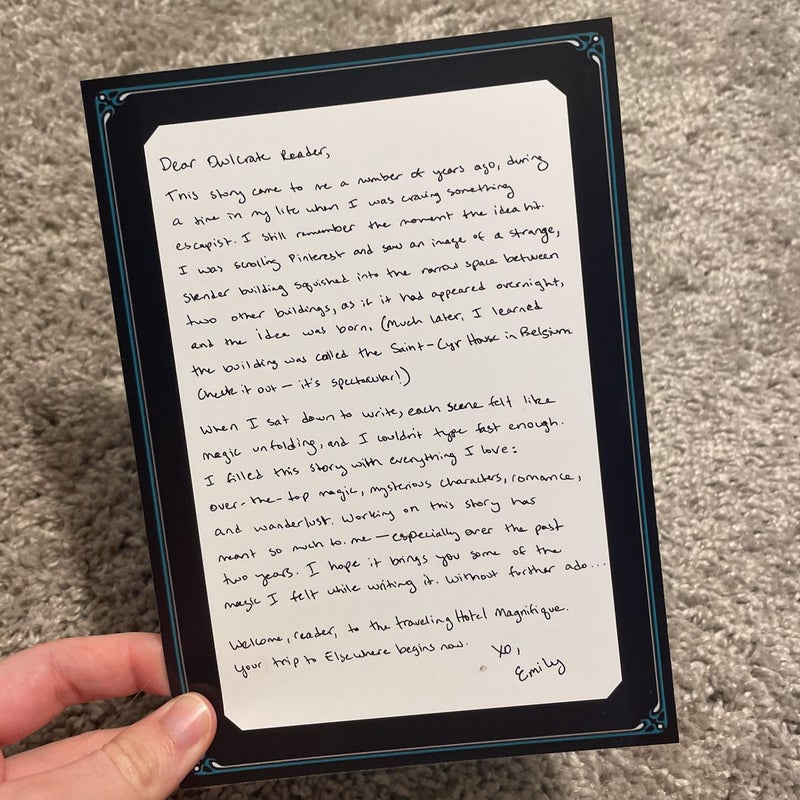 Dear Owlcrate Reader,
This story came to me a number of years ago, during
a time in my life when I was craving something
escapist. I still remember the moment the idea hit.
I was scrolling Pinterest and saw an image of a strange,
slender building squished into the narrow space between
two other buildings, as if it had appeared overnight,
and the idea was born. (Much later, I learned
the building was called the Saint-Cyr House in Belgium
Check it out — it's spectacular!)
When I sat down to write, each scene felt like
magic unfolding, and I couldn't type fast enough.
I filled this story with everything I love:
over-the-top magic, mysterious characters, romance,
and wanderlust. Working on this story has
meant so much to me — especially over the past
two years. I hope it brings you some of the
magic I felt while writing it. Without further ado...
Welcome, reader, to the traveling Hotel Magnifique.
Your trip to Elsewhere begins now.
XO,
Emily